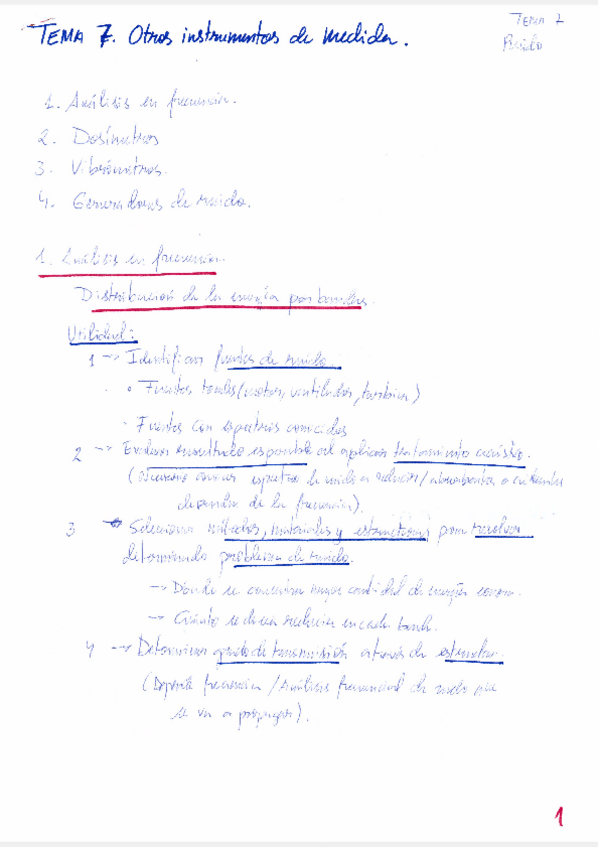 TEMA 7. Otros instrumentos de medida.
TEMA 7
Ruido
1. Análisis en frecuencia.
2. Dosímetros
3. Vibrómetros.
4. Generadores de ruido.
1. Análisis en frecuencia
Distribución de la energía por bandas.
Utilidad:
1 → Identificar fuentes de ruido.
• Fuentes tonales (motor, ventilador, turbina)
- Fuentes con espectros conocidos
2 → Evaluar resultado esperable al aplicar tratamiento acústico.
(Necesario conocer espectro de ruido a reducir/
depende de la frecuencia).
3 → Seleccionar métodos, materiales y estructuras para resolver
determinado problema de ruido.
→ Dónde se concentra mayor cantidad de energía sonora.
→ Cuánto se desea reducir en cada banda.
4 → Determinar grado de transmisión a través de estructuras.
(Depende frecuencia / Análisis frecuencial de ruido que
se va a propagar).
1